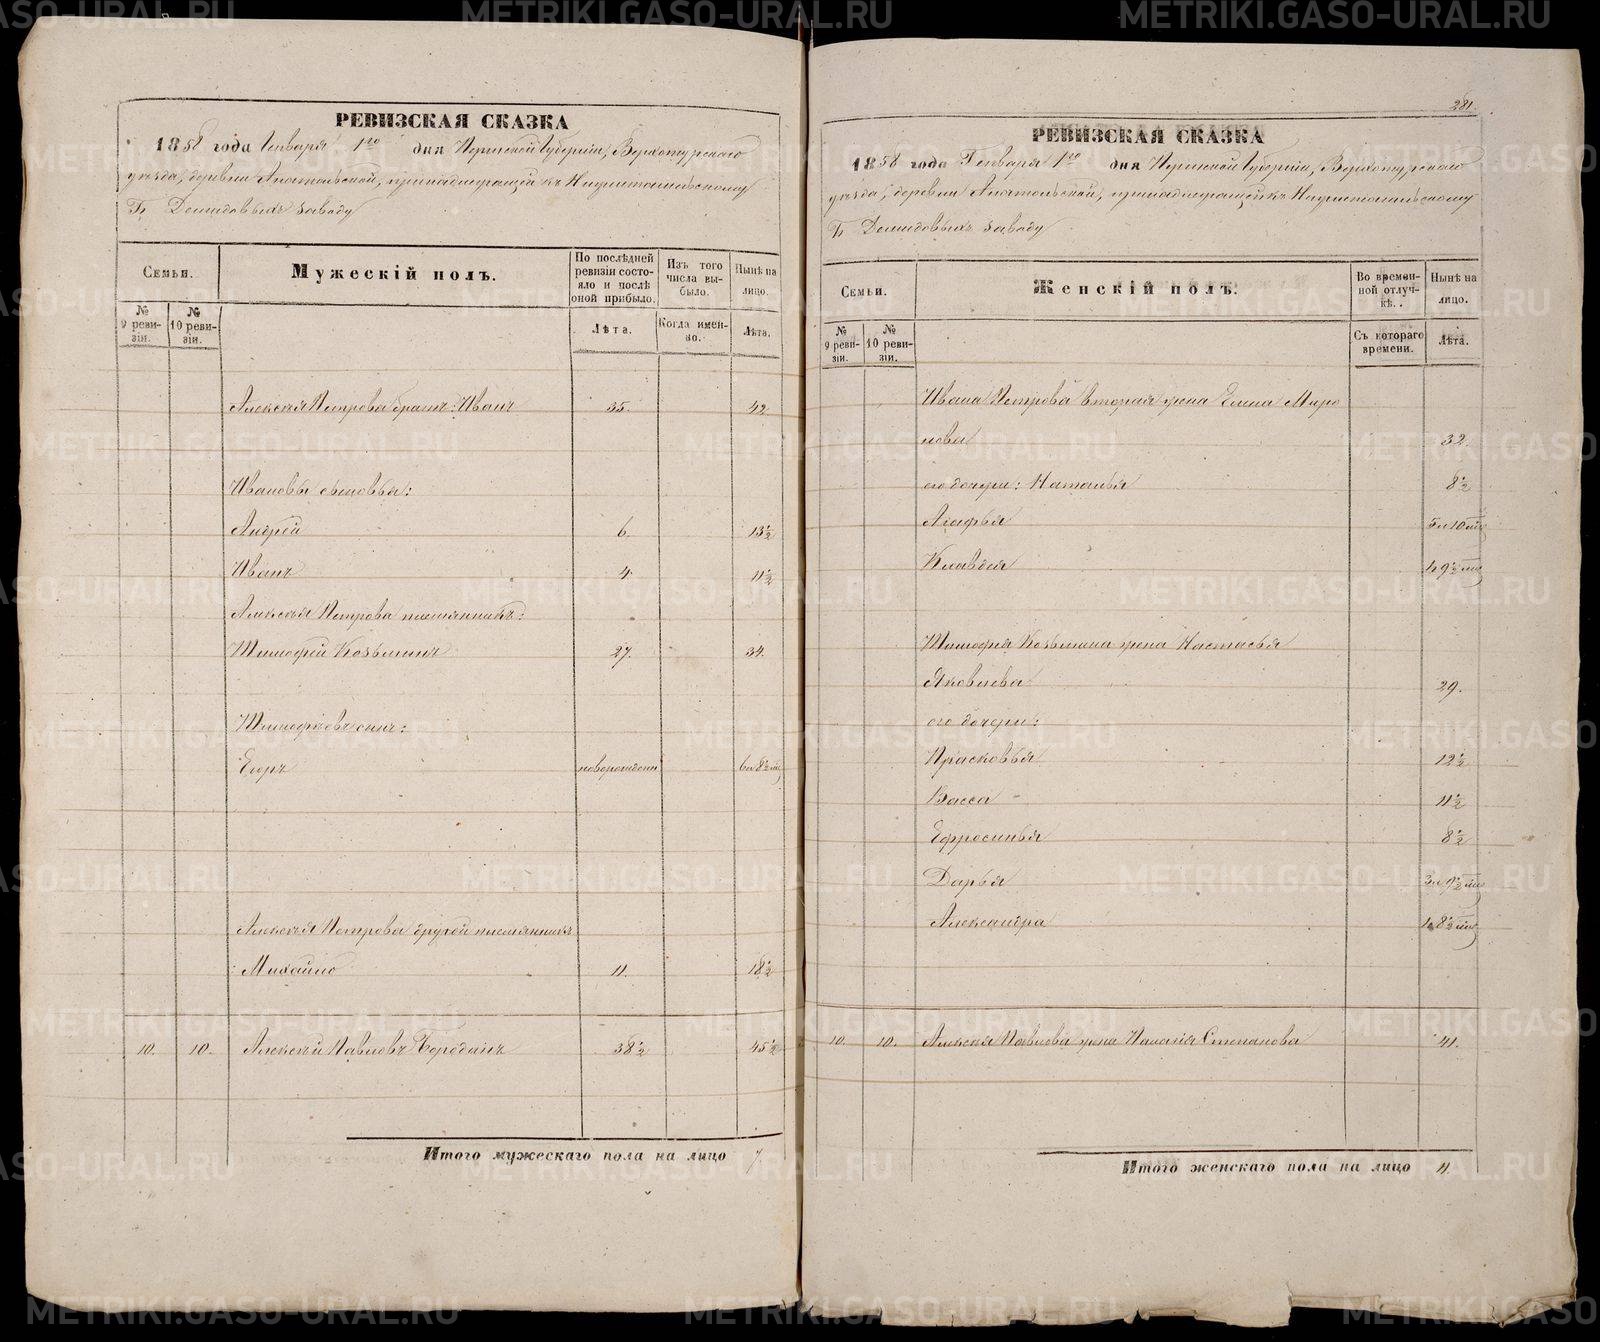 РЕВИЗСКАЯ СКАЗКА
1858 года Генваря 1го дня Пермской Губерніи, Верхотурскаго
уѣзда, деревни Апостольской, принадлежащей къ Нижнетагильскому
Гг. Демидовыхъ заводу
Семьи.
Мужескій полъ.
По послѣдней ревизіи состояло и послѣ оной прибыло.
Изъ того числа выбыло.
Нынѣ на лицо.
№ 9 ревизіи.
№ 10 ревизіи.
Лѣта.
Когда именно.
Лѣта.
Алексѣя Петрова братъ: Иванъ 35. 42
Ивановы сыновья:
Андрей 6. 13½
Иванъ 4 11½
Алексѣя Петрова племянникъ:
Тимофей Козьминъ 27. 34.
Тимофѣевъ сынъ:
Егоръ новорожден 6 л 8½ мѣ
Алексѣя Петрова другой племянникъ
Михайло 11. 18½
10. 10. Алексѣй Павловъ Бородинъ 38½ 45½
Итого мужескаго пола на лицо 7
281.
РЕВИЗСКАЯ СКАЗКА
1858 года Генваря 1го дня Пермской Губерніи, Верхотурскаго
уѣзда, деревни Апостольской, принадлежащей къ Нижнетагильскому
Гг. Демидовыхъ заводу
Семьи.
Женскій полъ.
Во временной отлучкѣ.
Нынѣ на лицо.
№ 9 ревизіи.
№ 10 ревизіи.
Съ котораго времени.
Лѣта.
Ивана Петрова вторая жена Елена Миро
нова 32.
его дочери: Наталья 8½
Агафья 5 л 10 мѣ
Клавдея 1 л 9½ мѣ
Тимофея Козьмина жена Настасья
Яковлева 29.
его дочери:
Прасковья 12½
Васса 11½
Ефросинья 8½
Дарья 3 л 9½ мѣ
Александра 1 л 8½ мѣ
10. 10. Алексѣя Павлова жена Маланія Степанова 41.
Итого женскаго пола на лицо 11.
METRIKI.GASO-URAL.RU